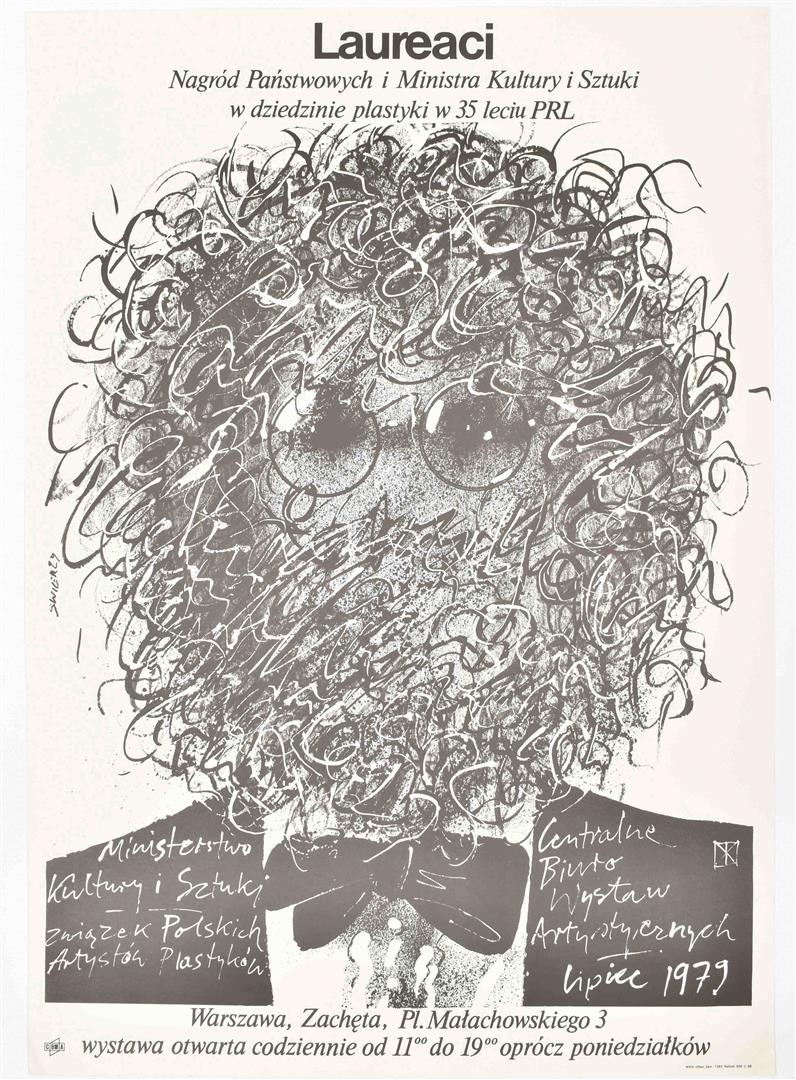 Laureaci
Nagród Państwowych i Ministra Kultury i Sztuki
w dziedzinie plastyki w 35 leciu PRL
SWIERZY
Ministerstwo
Kultury i Sztuki
Związek Polskich
Artystów Plastyków
Centralne
Biuro
Wystaw
Artystycznych
lipiec 1979
Warszawa, Zachęta, Pl. Małachowskiego 3
CBWA
wystawa otwarta codziennie od 11⁰⁰ do 19⁰⁰ oprócz poniedziałków